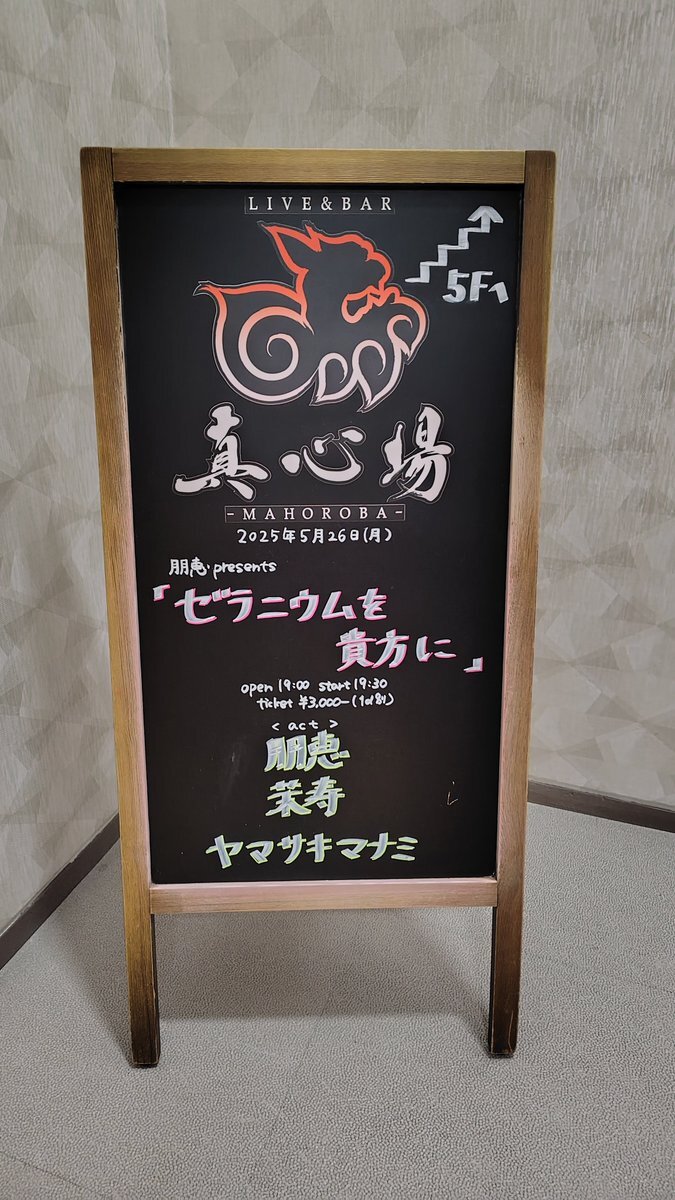 LIVE&BAR
5F↑
真心場
-MAHOROBA-
2025年5月26日(月)
朋恵 presents
「ゼラニウムを
貴方に」
open 19:00 start 19:30
ticket ¥3,000-(1d別)
< act >
朋恵
茉寿
ヤマサキマナミ